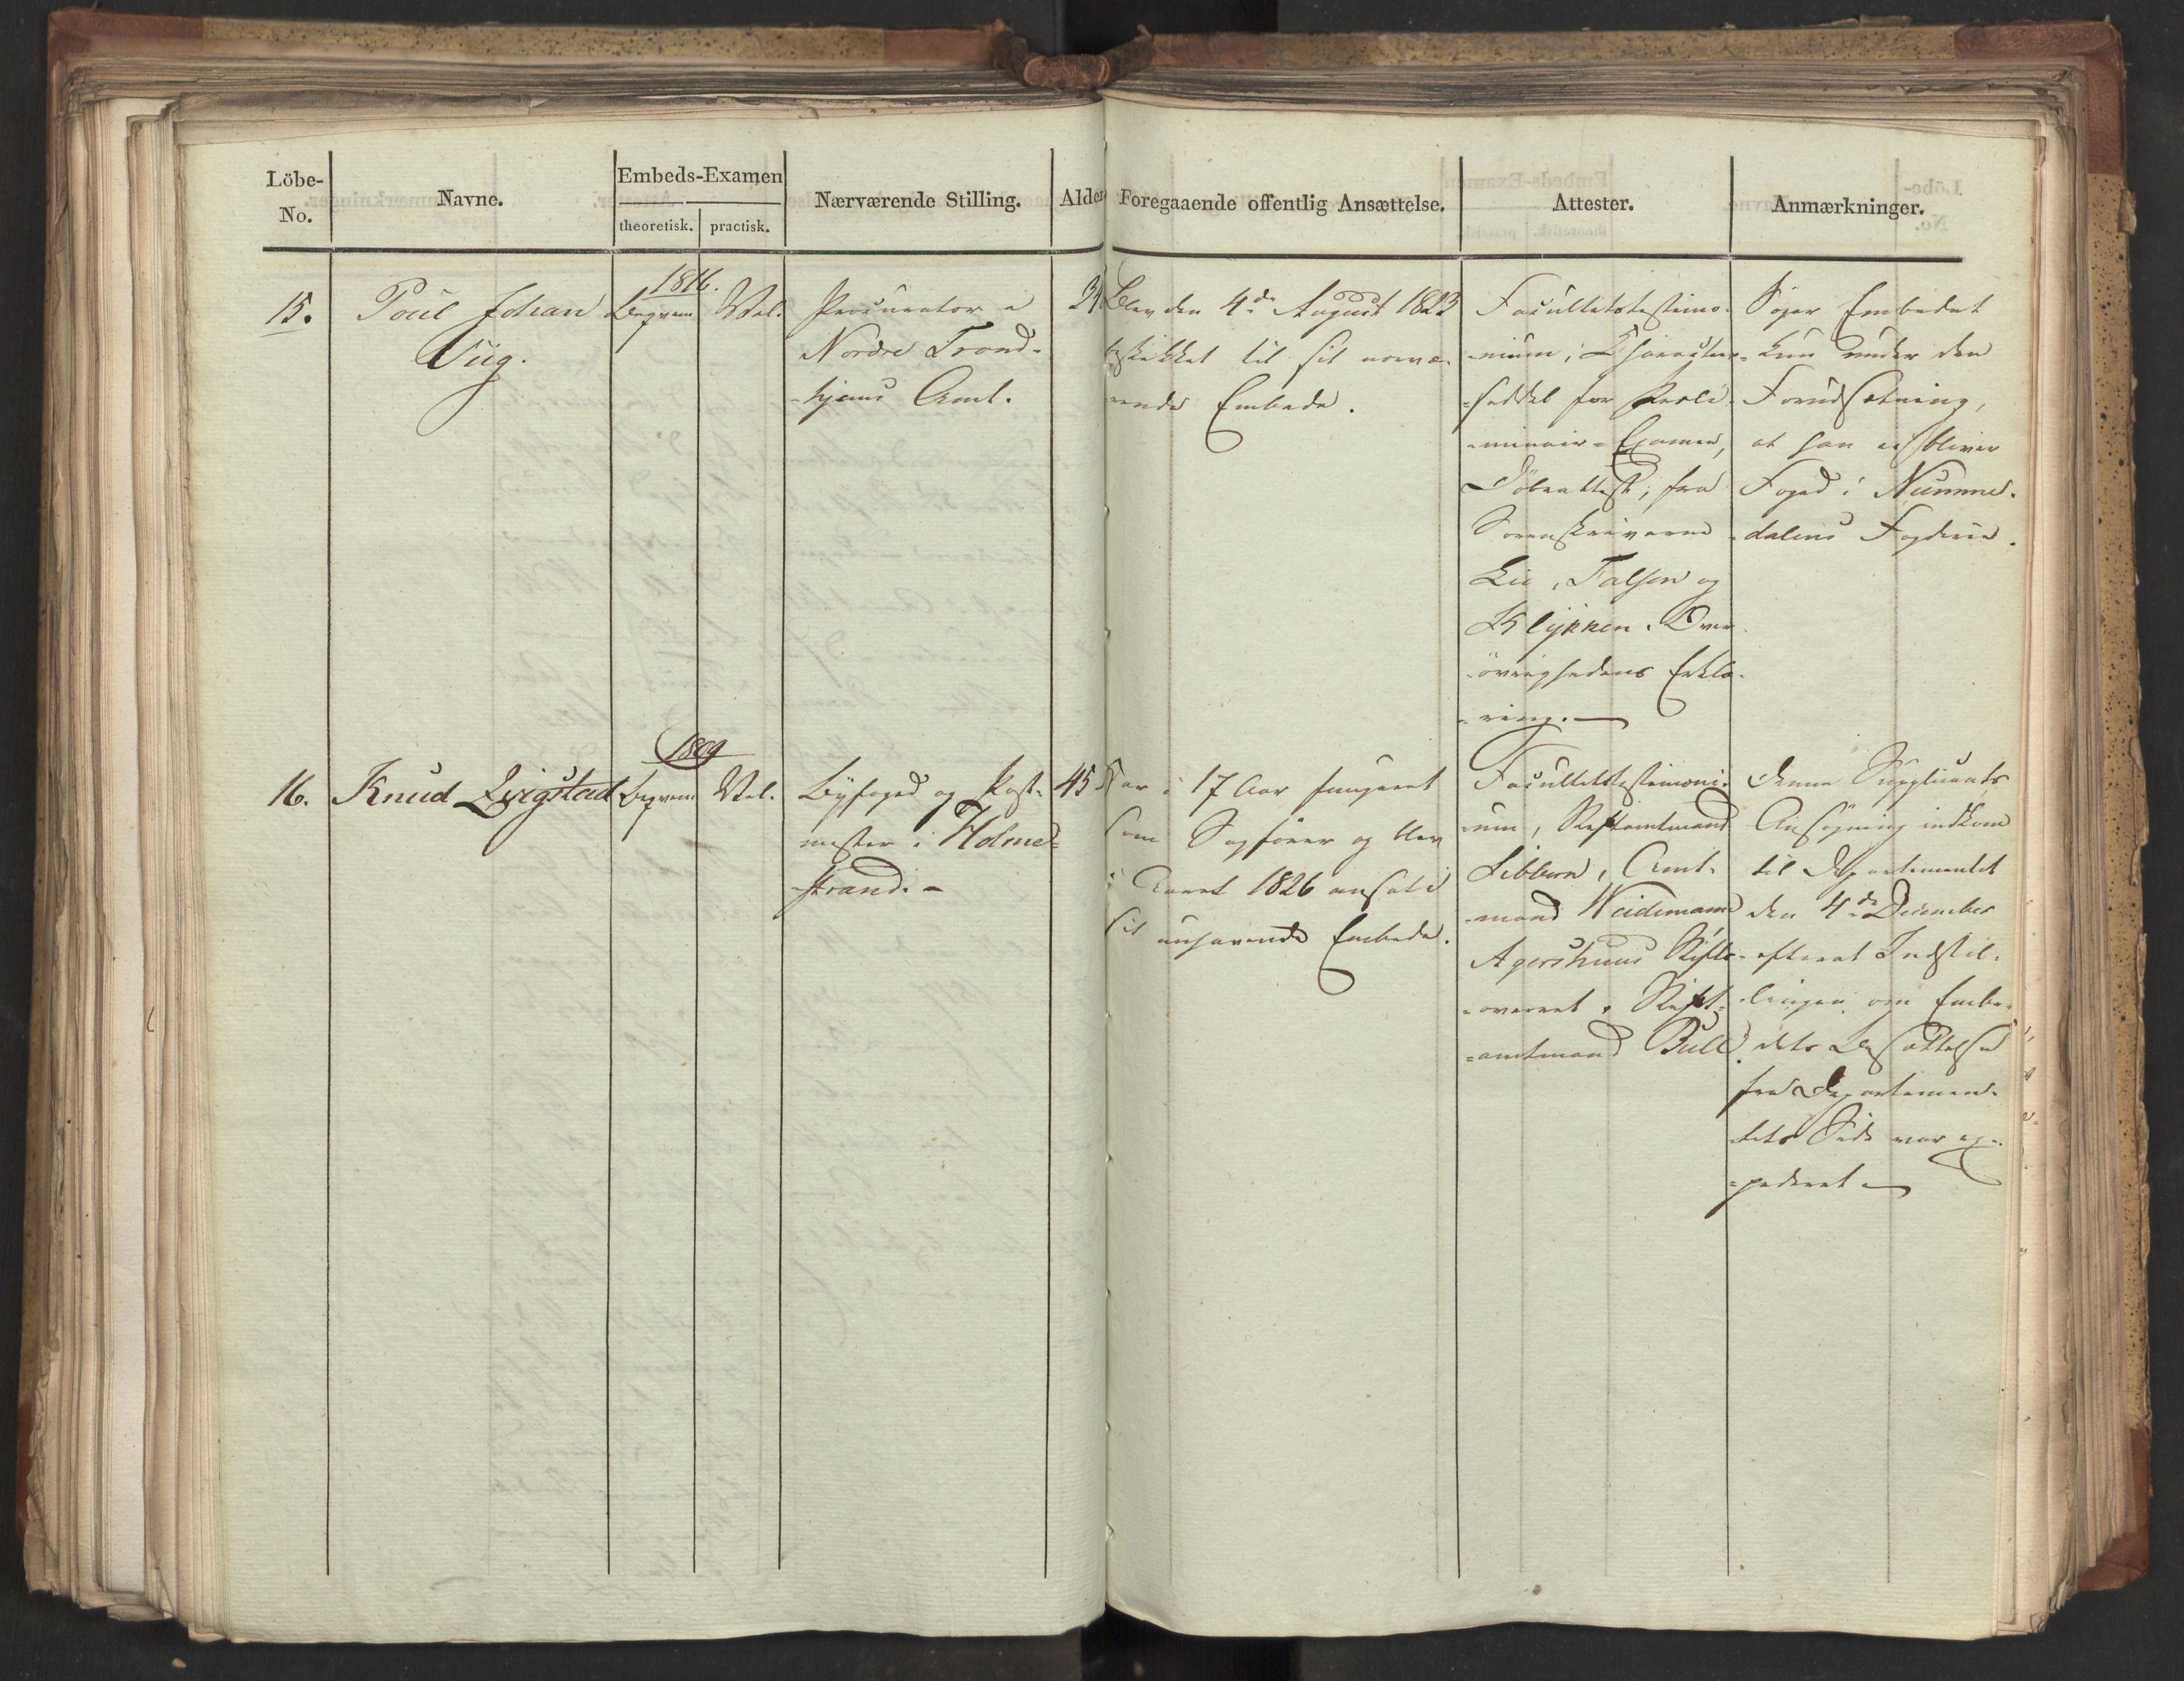 Löbe-
No.
Navne.
Embeds-Examen
theoretisk.
practisk.
Nærværende Stilling.
Alder
Foregaaende offentlig Ansættelse.
Attester.
Anmærkninger.
15.
Poul Johan
Viig.
1816.
Beqvem
Vel.
Procurator i
Nordre Trond-
-hjems Amt.
Blev den 4de August 1823
beskikket til sit nærvæ-
rende Embede.
Facultetstestimo-
-nium, Charakteer-
-seddel for Præli-
-minair-Examen,
Döbeattest, fra
Sorenskriverne
Lie, Falsen og
Klykken. Over-
-övrighedens Erklæ-
-ring.
Söger Embedet
kun under den
Forudsætning,
at han ei bliver
Foged i Numme-
-dalens Fogderie.
16.
Knud Lyigstad
1809
Beqvem
Vel.
Byfoged og Post-
mester i Holme-
-strand. -
45
Har i 17 Aar fungeret
som Sagförer og blev
i Aaret 1826 ansat i
sit nuhavende Embede.
Facultetstestimoni-
-um, Stiftamtmand
Sibbern, Amt-
-mand Weidemann
Agershuus Stifts-
-overret, Stift-
-amtmand Bull.
Denne Supplicants
Ansögning indkom
til Departementet
den 4de December
efterat Indstil-
-lingen om Embe-
-dets Besættelse
fra Departemen-
-tets Side var ex-
-pederet